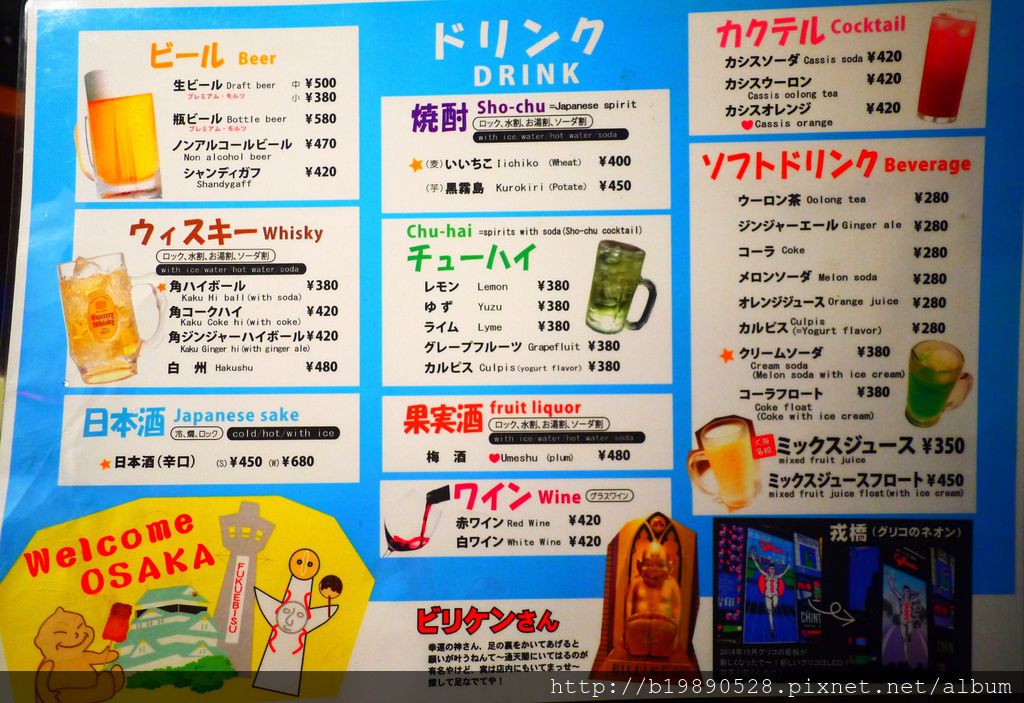 ドリンク
DRINK
ビール Beer
生ビール Draft beer 中 ¥500
プレミアム・モルツ 小 ¥380
瓶ビール Bottle beer ¥580
プレミアム・モルツ
ノンアルコールビール ¥470
Non alcohol beer
シャンディガフ ¥420
Shandygaff
ウィスキー Whisky
ロック、水割、お湯割、ソーダ割
with ice/water/hot water/soda
角ハイボール ¥380
Kaku Hi ball(with soda)
角コークハイ ¥420
Kaku Coke hi(with coke)
角ジンジャーハイボール ¥420
Kaku Ginger hi(with ginger ale)
白州 Hakushu ¥480
日本酒 Japanese sake
冷、燗、ロック cold/hot/with ice
日本酒(辛口) (S)¥450 (W)¥680
Welcome
OSAKA
FUKUEBISU
焼酎 Sho-chu =Japanese spirit
ロック、水割、お湯割、ソーダ割
with ice water/hot water/soda
(麦)いいちこ Iichiko (Wheat) ¥400
(芋)黒霧島 Kurokiri(Potate) ¥450
Chu-hai =spirits with soda(Sho-chu cocktail)
チューハイ
レモン Lemon ¥380
ゆず Yuzu ¥380
ライム Lyme ¥380
グレープフルーツ Grapefluit ¥380
カルピス Culpis(yogurt flavor) ¥380
果実酒 fruit liquor
ロック、水割、お湯割、ソーダ割
with ice water/hot water/soda
梅酒 Umeshu (plum) ¥480
ワイン Wine グラスワイン
赤ワイン Red Wine ¥420
白ワイン White Wine ¥420
ビリケンさん
幸運の神さん、足の裏をかいてあげると
願いが叶うねんて〜通天閣にいてはるのが
有名やけど、実は店内にもいてまっせ〜
探して足なでてや!
カクテル Cocktail
カシスソーダ Cassis soda ¥420
カシスウーロン ¥420
Cassis oolong tea
カシスオレンジ ¥420
Cassis orange
ソフトドリンク Beverage
ウーロン茶 Oolong tea ¥280
ジンジャーエール Ginger ale ¥280
コーラ Coke ¥280
メロンソーダ Melon soda ¥280
オレンジジュース Orange juice ¥280
カルピス Culpis (=Yogurt flavor) ¥280
クリームソーダ ¥380
Cream soda
(Melon soda with ice cream)
コーラフロート ¥380
Coke float
(Coke with ice cream)
大阪名物
ミックスジュース ¥350
mixed fruit juice
ミックスジュースフロート ¥450
mixed fruit juice float(with ice cream)
戎橋(グリコのネオン)
2014年10月グリコの看板が
新しくなったで〜!新しいグリコはLED
http://b19890528.pixnet.net/album